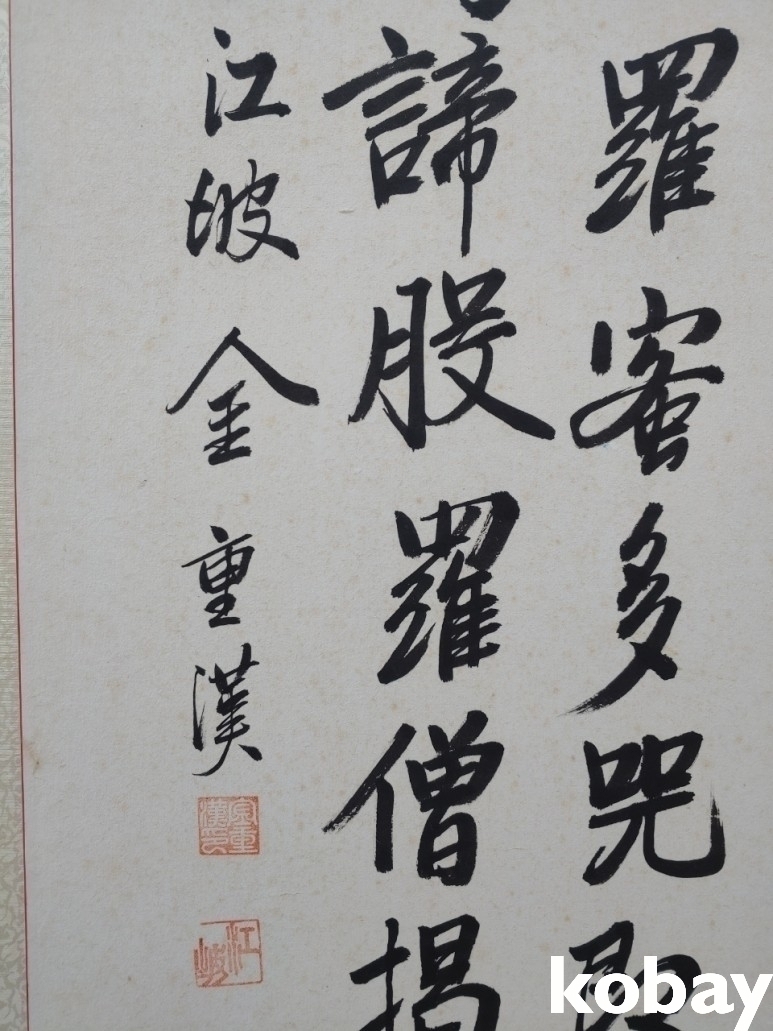 羅蜜多呪即
諦般羅僧揭
江坡 金重漢
金重漢印
江坡
kobay